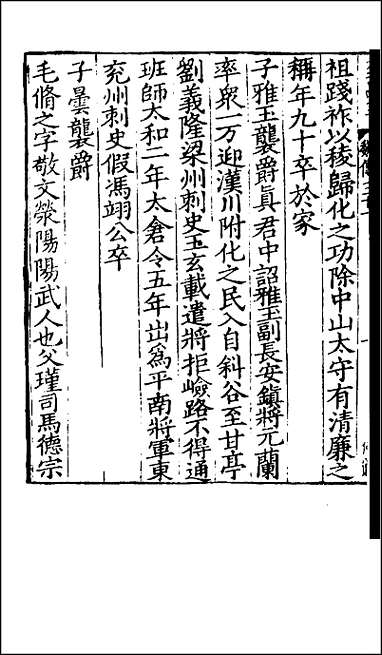 祖踐祚以稜歸化之功除中山太守有清廉之
稱年九十卒於家
子雅玉襲爵眞君中詔雅玉副長安鎭將元蘭
率衆一万迎漢川附化之民入自斜谷至甘亭
劉義隆梁州刺史王玄載遣將拒嶮路不得通
班師太和二年太倉令五年出爲平南將軍東
兖州刺史假馮翊公卒
子曇襲爵
毛脩之字敬文滎陽陽武人也父瑾司馬德宗